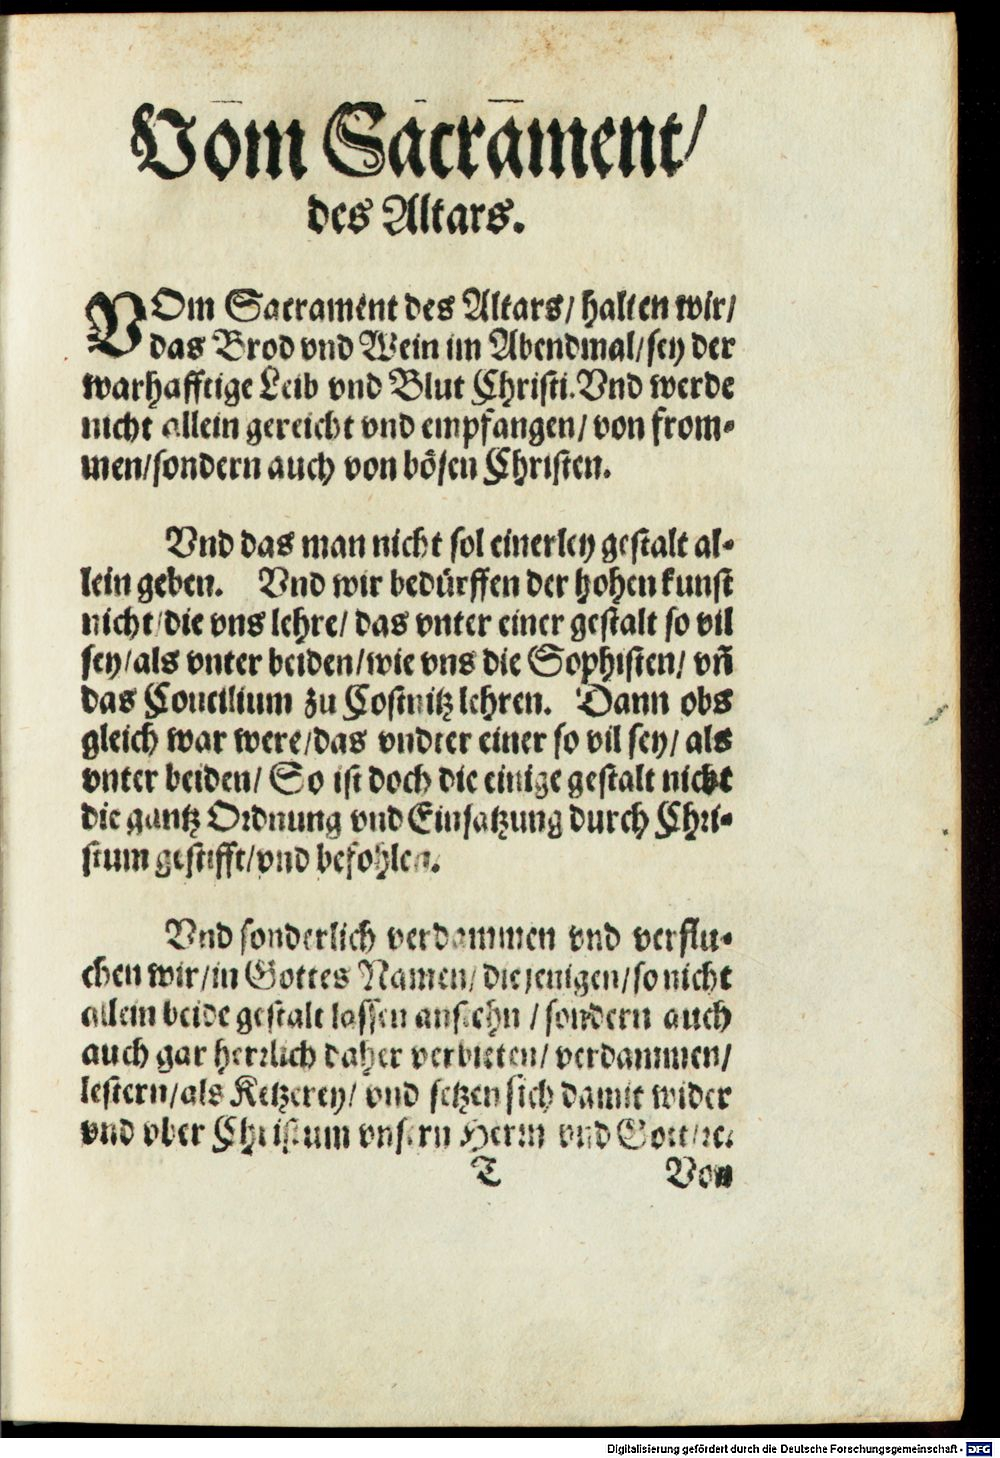 Vom Sacrament/
des Altars.
VOm Sacrament des Altars/ halten wir/
das Brod vnd Wein im Abendmal/ sey der
warhafftige Leib vnd Blut Christi. Vnd werde
nicht allein gereicht vnd empfangen/ von from-
men/ sondern auch von bösen Christen.
Vnd das man nicht sol einerley gestalt al-
lein geben. Vnd wir bedürffen der hohen kunst
nicht/ die vns lehre/ das vnter einer gestalt so vil
sey/ als vnter beiden/ wie vns die Sophisten/ vñ
das Concilium zu Costnitz lehren. Dann obs
gleich war were/ das vndter einer so vil sey/ als
vnter beiden/ So ist doch die einige gestalt nicht
die gantz Ordnung vnd Einsatzung durch Chri-
stum gestifft/ vnd befohlen.
Vnd sonderlich verdammen vnd verflu-
chen wir/ in Gottes Namen/ die jenigen/ so nicht
allein beide gestalt lassen anstehn / sondern auch
auch gar herrlich daher verbieten/ verdammen/
lestern/ als Ketzerey/ vnd setzen sich damit wider
vnd vber Christum vnsern Herrn vnd Gott/ ꝛc.
T Von
Digitalisierung gefördert durch die Deutsche Forschungsgemeinschaft - DFG